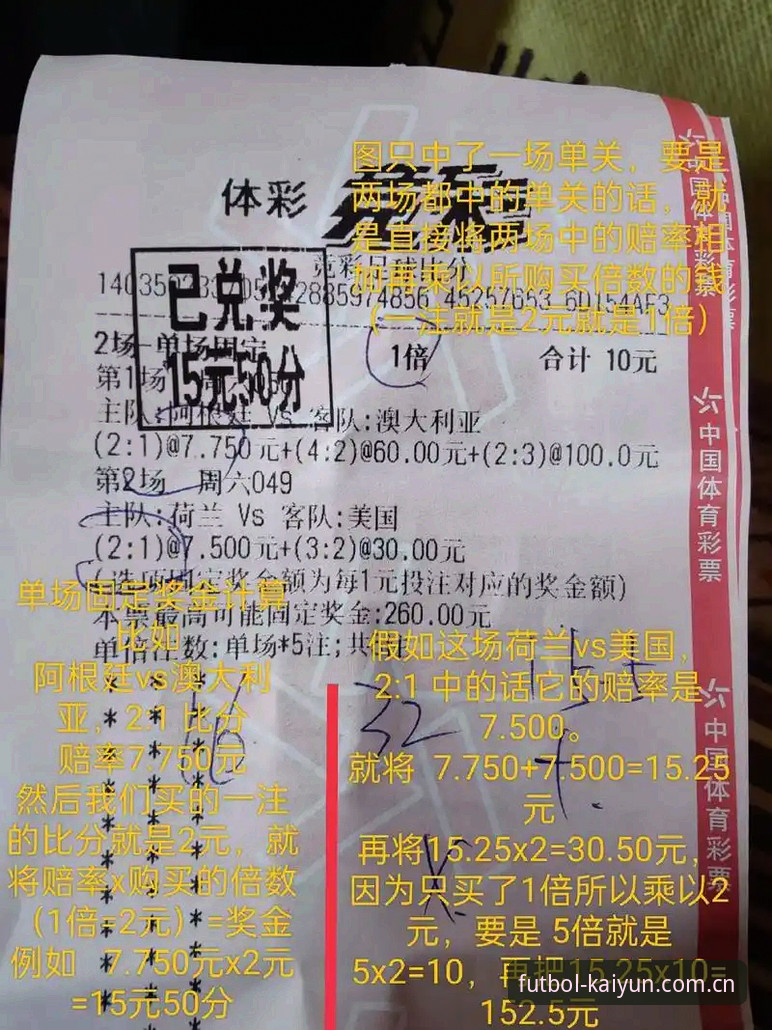 体彩
竞彩足球比分
已兑奖
15元50分
2场-单场固定
1倍
合计 10元
第1场
主队:阿根廷 Vs 客队:澳大利亚
(2:1)@7.750元+(4:2)@60.00元+(2:3)@100.0元
第2场 周六049
主队:荷兰 Vs 客队:美国
(2:1)@7.500元+(3:2)@30.00元
(选项固定奖金额为每1元投注对应的奖金额)
本票最高可能固定奖金:260.00元
单倍注数:单场*5注;共
图只中了一场单关，要是
两场都中的单关的话，就
是直接将两场中的赔率相
加再乘以所购买倍数的钱
（一注就是2元就是1倍）
单场固定奖金计算
比如
阿根廷vs澳大利
亚，2:1 比分
赔率7.750元
然后我们买的一注
的比分就是2元，就
将赔率x购买的倍数
（1倍=2元）=奖金
例如 7.750元x2元
=15元50分
假如这场荷兰vs美国，
2:1 中的话它的赔率是
7.500。
就将 7.750+7.500=15.25
元
再将15.25x2=30.50元，
因为只买了1倍所以乘以2
元，要是 5倍就是
5x2=10，再把15.25x10=
152.5元
32
中国体育彩票
中国体育彩票
中国体育彩票
futbol-kaiyun.com.cn